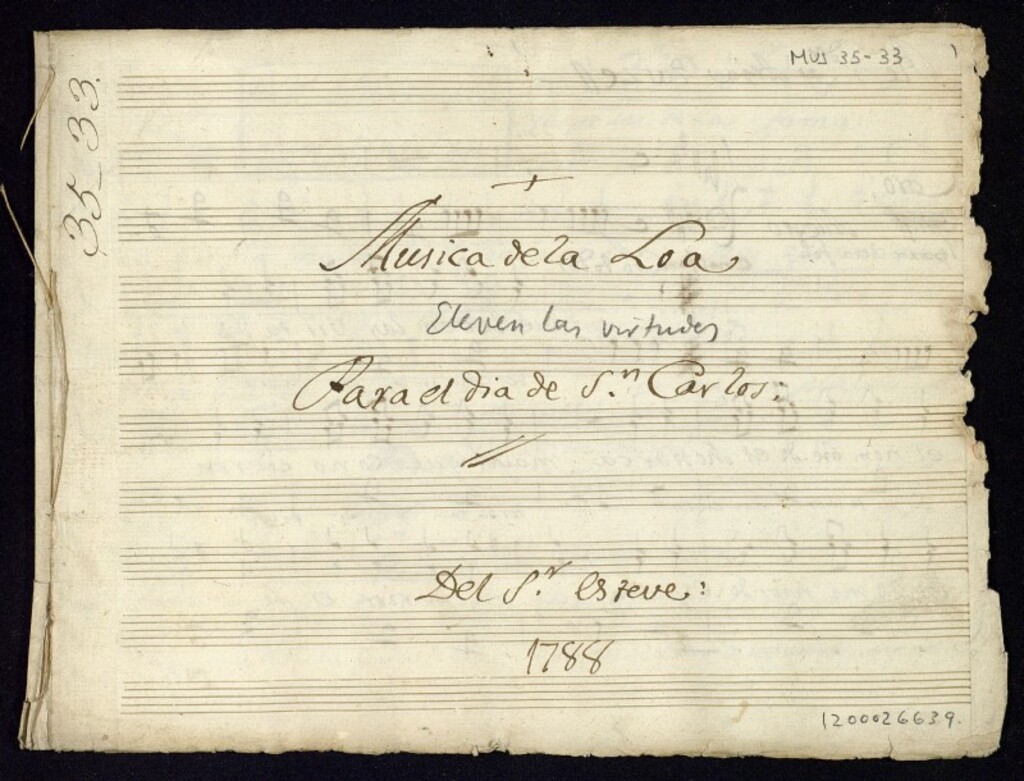 MUS 35-33
35-33.
+
Musica de la Loa
Eleven las virtudes
Para el dia de S.n Carlos:
Del S.r Esteve:
1788
1200026639.